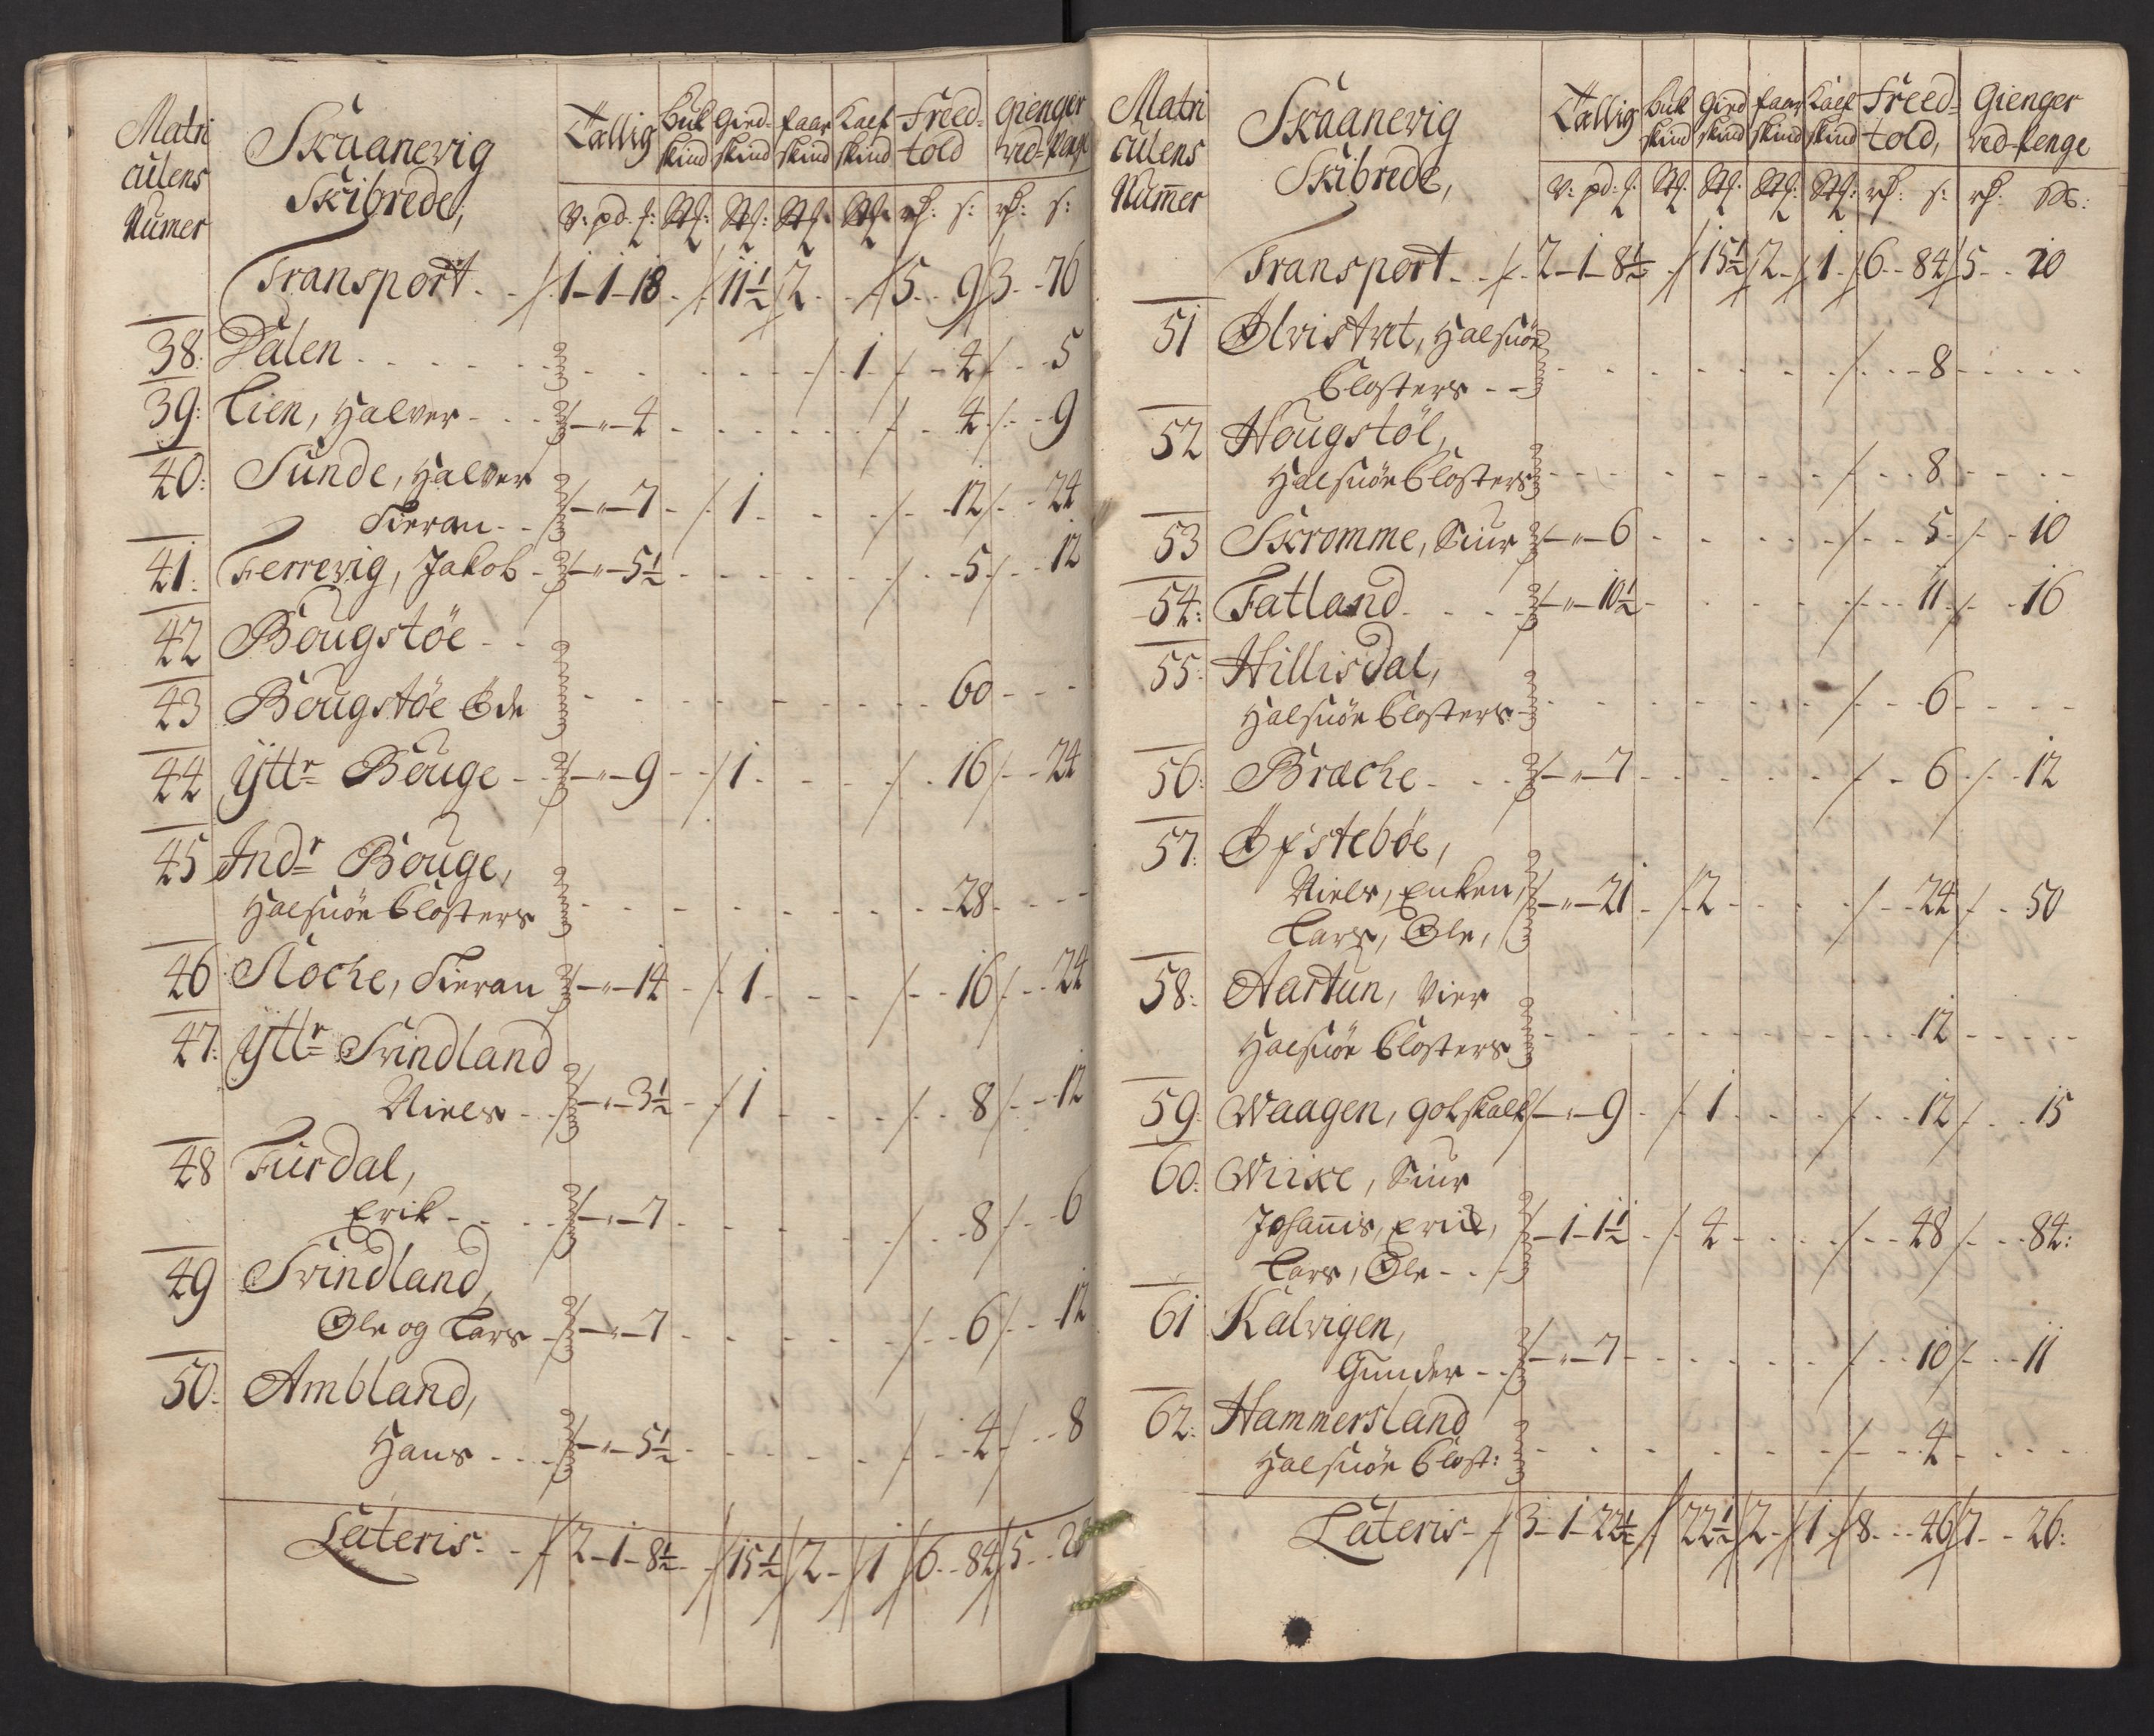 Matri
culens
Numer
Skaanevig
Skibrede,
Tallig
Buk
skind
Gied
skind
faar
skind
Kalf
skind
Freed-
told
Gienger
ved-Penge
V: pd: Stk: Stk: Stk: Stk: s: s:
Transport - - 1-1-18 - 11½ 2 - 5 - 9 3 - 76
38: Dalen - - - - 1 - 4 - 5
39: Lien, Halver - - - „ - 4 - - - 4 - 9
40: Sunde, Halver
Sieran - - - „ - 7 - 1 - - - 12 - 24
41: Ferrevig, Jakob - - „ - 5½ - - - 5 - 12
42 Bougstøe - -
43 Bougstøe Øde - - - 60 - - -
44 Ÿttr Bouge - - - „ - 9 - 1 - - - 16 - 24
45 Indr Bouge,
Halsnön Closters - - - 28 - - -
46 Noche, Sieran - „ - 14 - 1 - - - 16 - 24
47: Ÿttr Svindland
Niels - - - „ - 3½ - 1 - - - 8 - 12
48 Fürdal,
Erik - - - - „ - 7 - - - 8 - 6
49 Svindland,
Ole og Lars - - „ - 7 - - - 6 - 12
50: Ambland,
Hans - - - - „ - 5½ - - - 4 - 8
Lateris - - 2-1-8½ - 15½ 2 - 1 6 - 84 5 - 20
Matri
culens
Numer
Skaanevig
Skibrede,
Tallig
Buk
skind
Gied
skind
faar
skind
Kalf
skind
Freed-
told,
Gienger
ved-Penge
V: pd: Stk: Stk: Stk: Stk: s:
Transport - - 2-1-8½ - 15½ 2 - 1 - 6 - 84 5 - 20
51 Ølvistvet, Halsnön
Closters - - - - - 8 - - -
52 Hougstøl,
Halsnön Closters - - - 8 - - -
53 Skromme, Siur - „ - 6 - - - 5 - 10
54: Fatland - - - - „ - 10½ - - - 11 - 16
55: Hillisdal,
Halsnön Closters - - - 6 - - -
56: Brache - - - - „ - 7 - - - 6 - 12
57: Øfstebøe,
Niels, Enken,
Lars, Ole, - „ - 21 - 2 - - - 24 - 50
58: Aartun, Vier
Halsnön Closters - - - 12 - - -
59: Waagen, Golskalk - „ - 9 - 1 - - - 12 - 15
60: Wiike, Siur
Johannis, Erik,
Lars, Ole - - - 1-1½ - 4 - - - 48 - 84:
61 Kalvigen,
Gunder - - - „ - 7 - - - 10 - 11
62: Hammersland
Halsnön Clost: - - - 4 - - -
Lateris - 3-1-22½ 22½ 2 - 1 - 8 - 46 7 - 26: